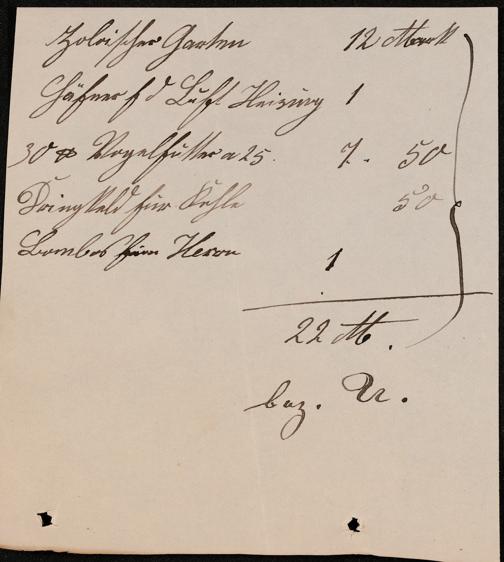 Zoloischer Garten 12 Mark
Häfner f d Luft Heizung 1
30 ℔ Vogelfutter a 25. 7. 50
Tringkeld für Kohle 50
Bombos fürn Heron 1
22 M.
bez. Tr.